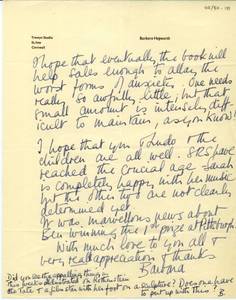 Trewyn Studio
St. Ives
Cornwall
Barbara Hepworth
I hope that eventually the book will
help sales enough to allay the
worst forms of anxiety. One needs
really, so awfully little; but that
small amount is intensely diff-
icult to maintain, as you know!
I hope that you & the
children are all well. SRS have
reached the crucial age. Sarah
is completely happy with her music
but the other two are not clearly
determined yet.
It was marvellous news about
Ben winning the 1st prize at Pittsburgh.
With much love to you all &
very real appreciation & thanks
Barbara
Did you see the appalling thing in
this week's on Rothenstein
the Tate & a photo with his foot on a sculpture? Does one have
to put up with this! B.